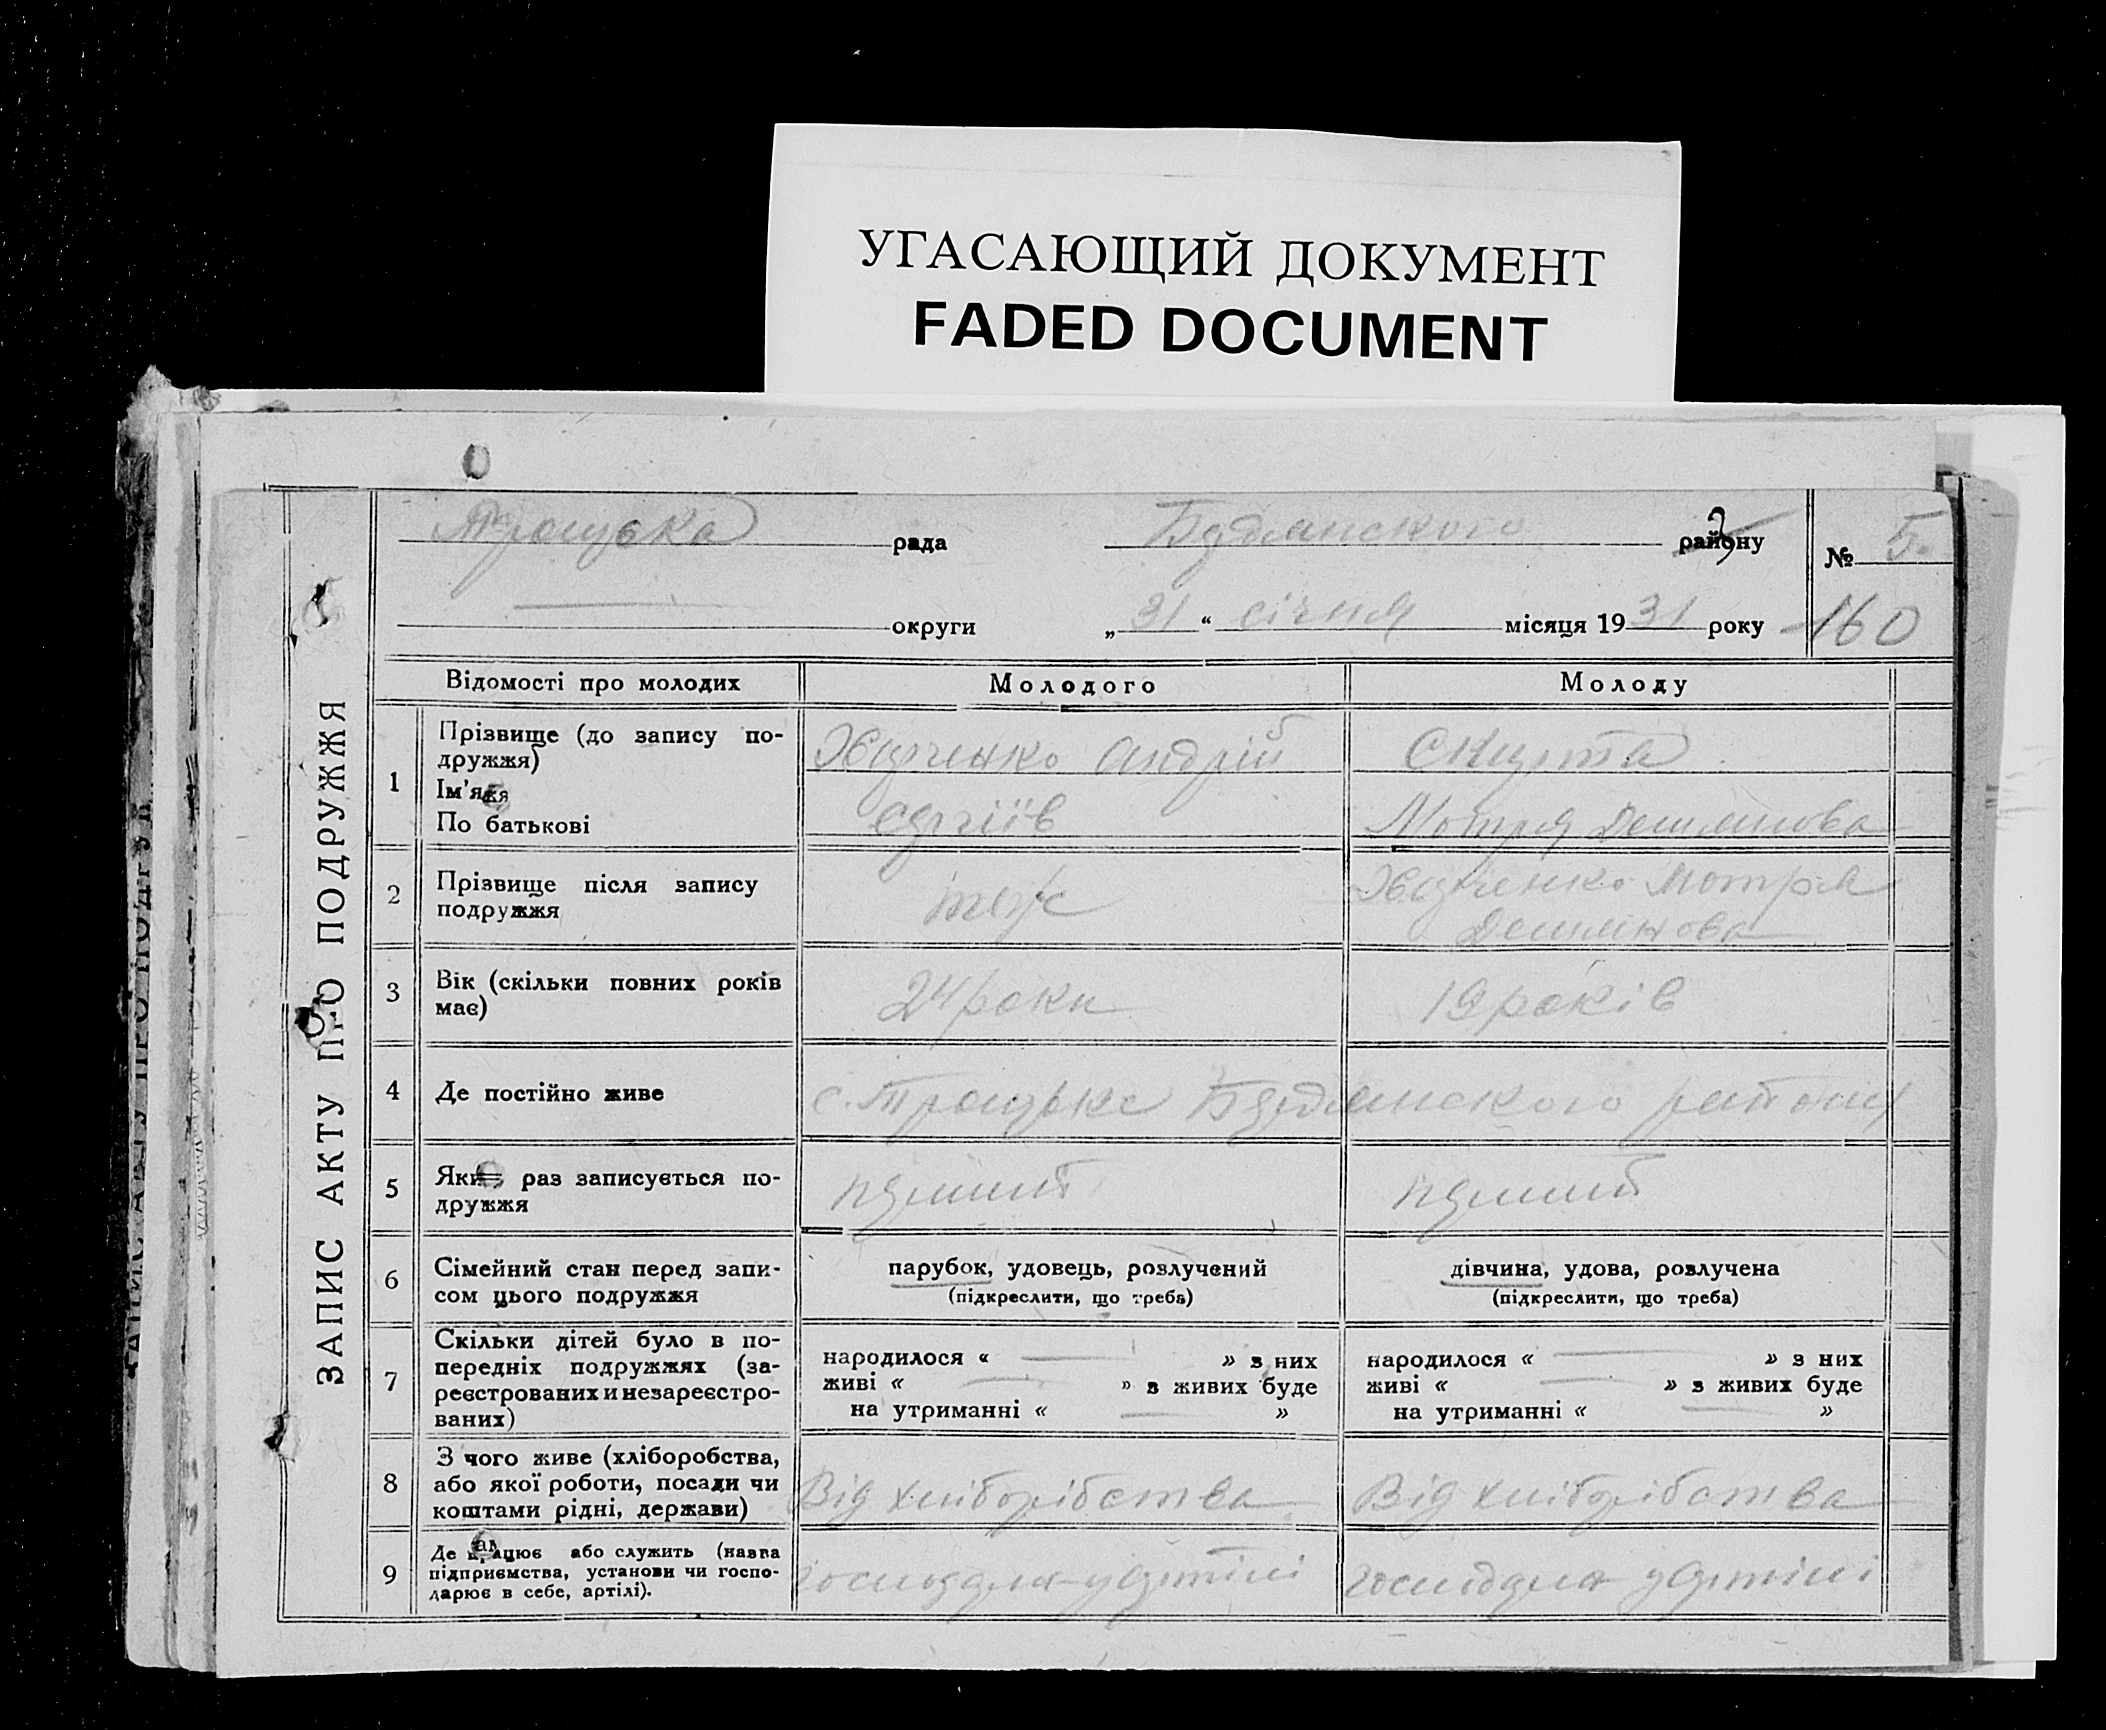 УГАСАЮЩИЙ ДОКУМЕНТ
FADED DOCUMENT
ЗАПИС АКТУ ПРО ПОДРУЖЖЯ
Троцька рада Будянского району № 5
округи „31“ січня місяця 1931 року 160
Відомості про молодих Молодого Молоду
1 Прізвище (до запису по-
дружжя) Андрій
Ім'я
По батькові Мотря
2 Прізвище після запису
подружжя теж Мотря
3 Вік (скільки повних років
має) 24 роки 19 років
4 Де постійно живе с. Троцьке Будянского району
5 раз записується по-
дружжя
6 Сімейний стан перед запи-
сом цього подружжя парубок, удовець, розлучений дівчина, удова, розлучена
(підкреслити, що треба) (підкреслити, що треба)
7 Скільки дітей було в по-
передніх подружжях (за-
реєстрованих и незареєстро-
ваних) народилося « » з них народилося « » з них
живі « » з живих буде живі « » з живих буде
на утриманні « » на утриманні « »
8 З чого живе (хліборобства,
або якої роботи, посади чи
коштами рідні, держави) Від хліборібства Від хліборібства
9 Де працює або служить (назва
підприємства, установи чи госпо-
дарює в себе, артілі).